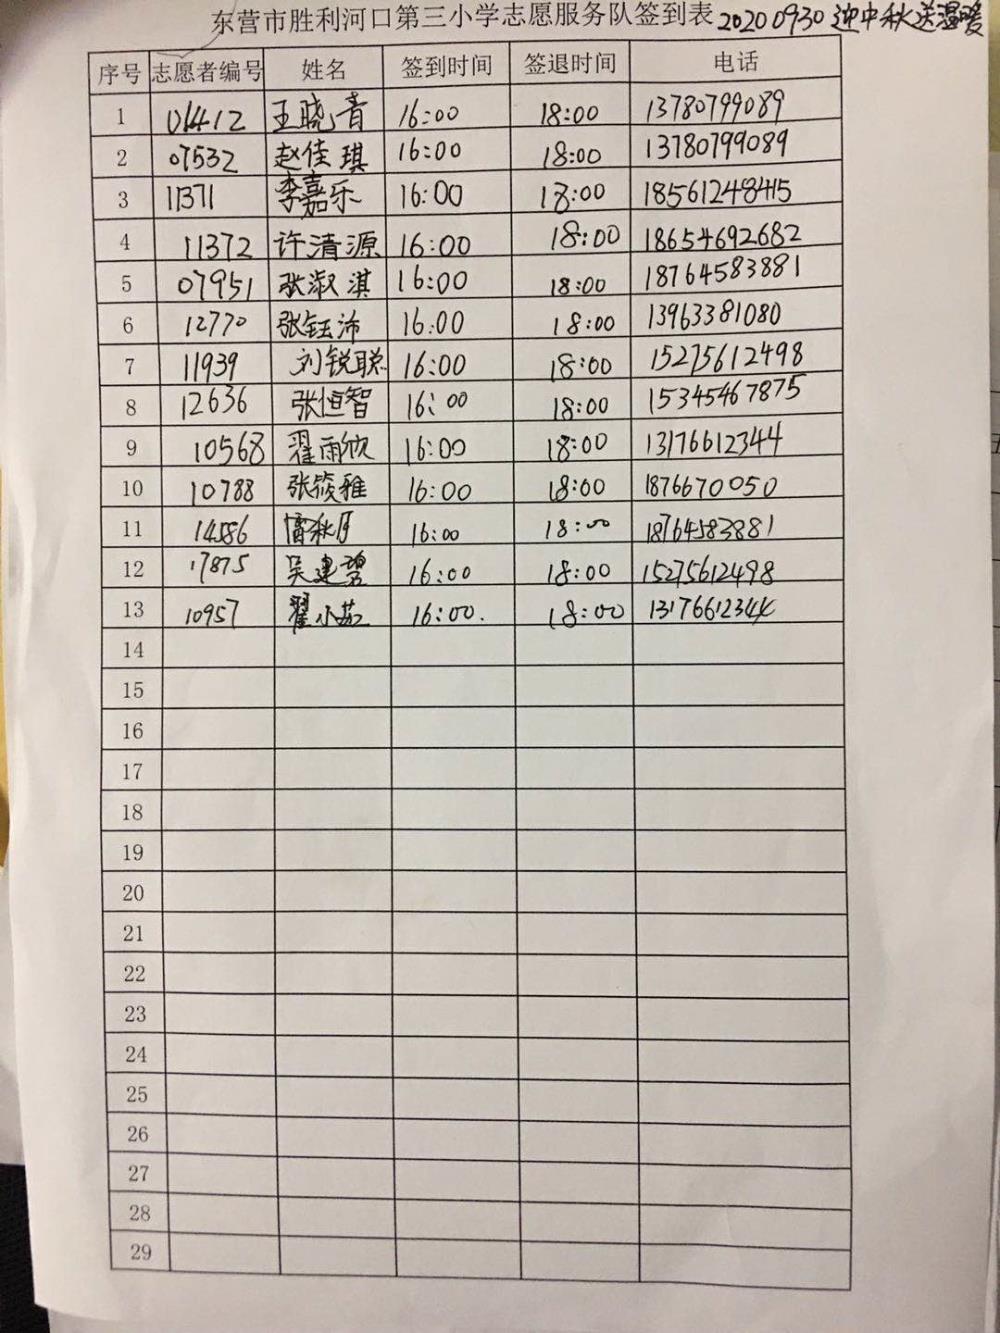 东营市胜利河口第三小学志愿服务队签到表 20200930 迎中秋送温暖
序号 志愿者编号 姓名 签到时间 签退时间 电话
1 01412 王晓青 16:00 18:00 13780799089
2 07532 赵佳琪 16:00 18:00 13780799089
3 11371 李嘉乐 16:00 18:00 18561248415
4 11372 许清源 16:00 18:00 18654692682
5 07951 张淑淇 16:00 18:00 18764583881
6 12770 张钰沛 16:00 18:00 13963381080
7 11939 刘锐聪 16:00 18:00 15275612498
8 12636 张恒智 16:00 18:00 15345467875
9 10568 翟雨欣 16:00 18:00 13176612344
10 10788 张筱雅 16:00 18:00 1876670050
11 14586 秋月 16:00 18:00 18764583881
12 17875 吴建碧 16:00 18:00 15275612498
13 10957 翟小茹 16:00. 18:00 13176612344
14
15
16
17
18
19
20
21
22
23
24
25
26
27
28
29